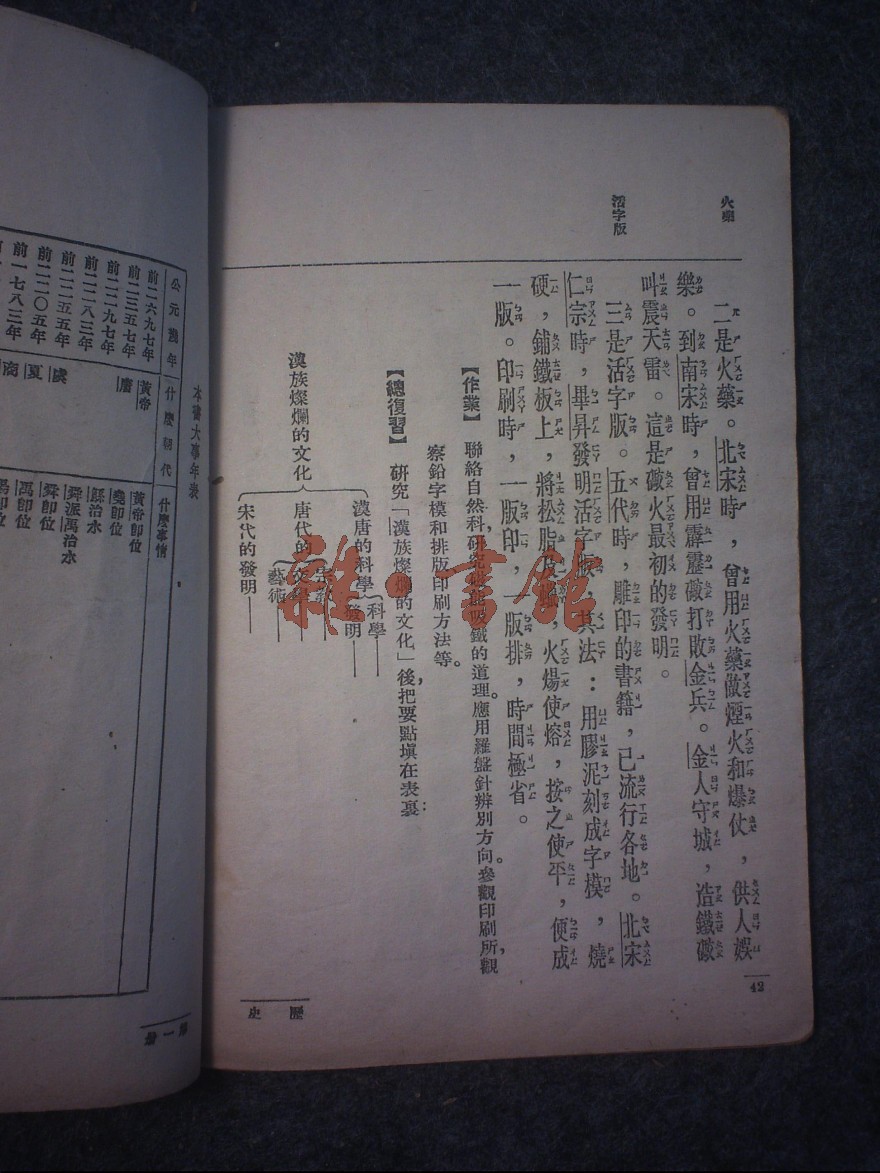 火藥
二是火藥。北宋時，曾用火藥做煙火和爆仗，供人娛
樂。到南宋時，曾用霹靂礮打敗金兵。金人守城，造鐵礮
叫震天雷。這是礮火最初的發明。
活字版
三是活字版。五代時，雕印的書籍，已流行各地。北宋
仁宗時，畢昇發明活字版，其法：用膠泥刻成字模，燒
硬，鋪鐵板上，將松脂及，火煬使熔，按之使平，便成
一版。印刷時，一版印，一版排，時間極省。
【作業】 聯絡自然科，研究吸鐵的道理。應用羅盤針辨別方向。參觀印刷所，觀
察鉛字模和排版印刷方法等。
【總復習】 研究「漢族燦爛的文化」後，把要點填在表裏：
漢族燦爛的文化
漢唐的科學
科學——
發明——
唐代的
藝術——
宋代的發明——
42
歷史
雜·書館
本書大事年表
公元幾年 什麼朝代 什麼事情
前二六九七年 黃帝 黃帝即位
前二三五七年 唐 堯即位
前二二九七年 鯀治水
前二二八三年 舜派禹治水
前二二五五年 虞 舜即位
前二二〇五年 夏 禹即位
前一七八三年 商
第一册